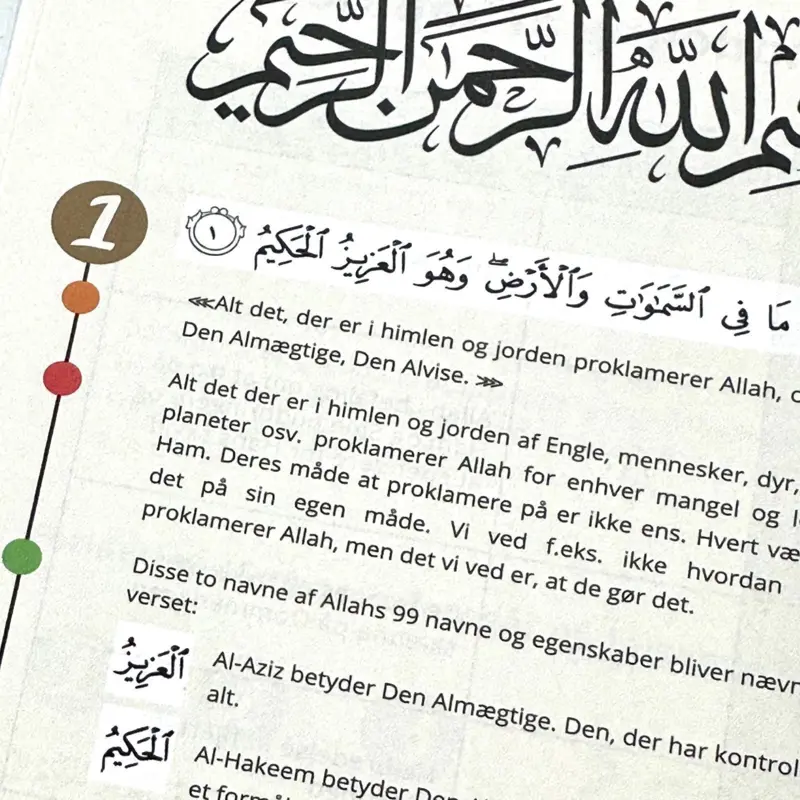 بِسْمِ اللَّهِ الرَّحْمَٰنِ الرَّحِيمِ
1
مَا فِي السَّمَٰوَٰتِ وَالْأَرْضِ ۖ وَهُوَ الْعَزِيزُ الْحَكِيمُ ١
⋘Alt det, der er i himlen og jorden proklamerer Allah,
Den Almægtige, Den Alvise. ⋙
Alt det der er i himlen og jorden af Engle, mennesker, dyr,
planeter osv. proklamerer Allah for enhver mangel og
Ham. Deres måde at proklamere på er ikke ens. Hvert
det på sin egen måde. Vi ved f.eks. ikke hvordan
proklamerer Allah, men det vi ved er, at de gør det.
Disse to navne af Allahs 99 navne og egenskaber bliver
verset:
الْعَزِيزُ Al-Aziz betyder Den Almægtige. Den, der har
alt.
الْحَكِيمُ Al-Hakeem betyder Den
et